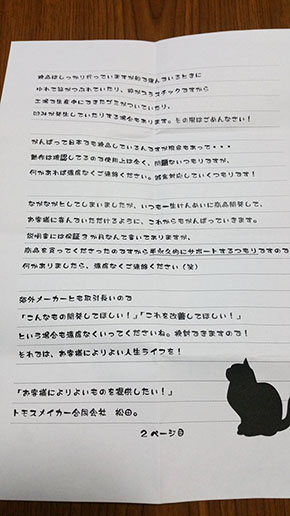 検品はしっかり行っていますが船で運んでいるときに
ゆれて箱がつぶれていたり、箱がプラスチックですから
工場で生産中にできたゴミがついていたり、
凹みが発生していたりする場合もあります。その際はごめんなさい!
がんばって日本でも検品しているんですが限界もあって・・・
動作は確認してるので使用上は全く、問題ないつもりですが、
何かあれば遠慮なくご連絡ください。誠意対応していくつもりです!
ながながとしてしまいましたが、いつも一生けんめいに商品開発して、
お客様に喜んでいただけるように、これからもがんばっていきます。
説明書には保証3か月なんて書いてありますが、
商品を買ってくださったのですから半永久的にサポートするつもりですので
何かありましたら、遠慮なくご連絡ください(笑)
海外メーカーとも取引長いので
「こんなもの開発してほしい!」「これを改善してほしい!」
という場合も遠慮なくいってくださいね。検討できますので!
それでは、お客様によりよい人生ライフを!
「お客様によりよいものを提供したい!」
トモスメイカー合同会社 松田。
2ページ目